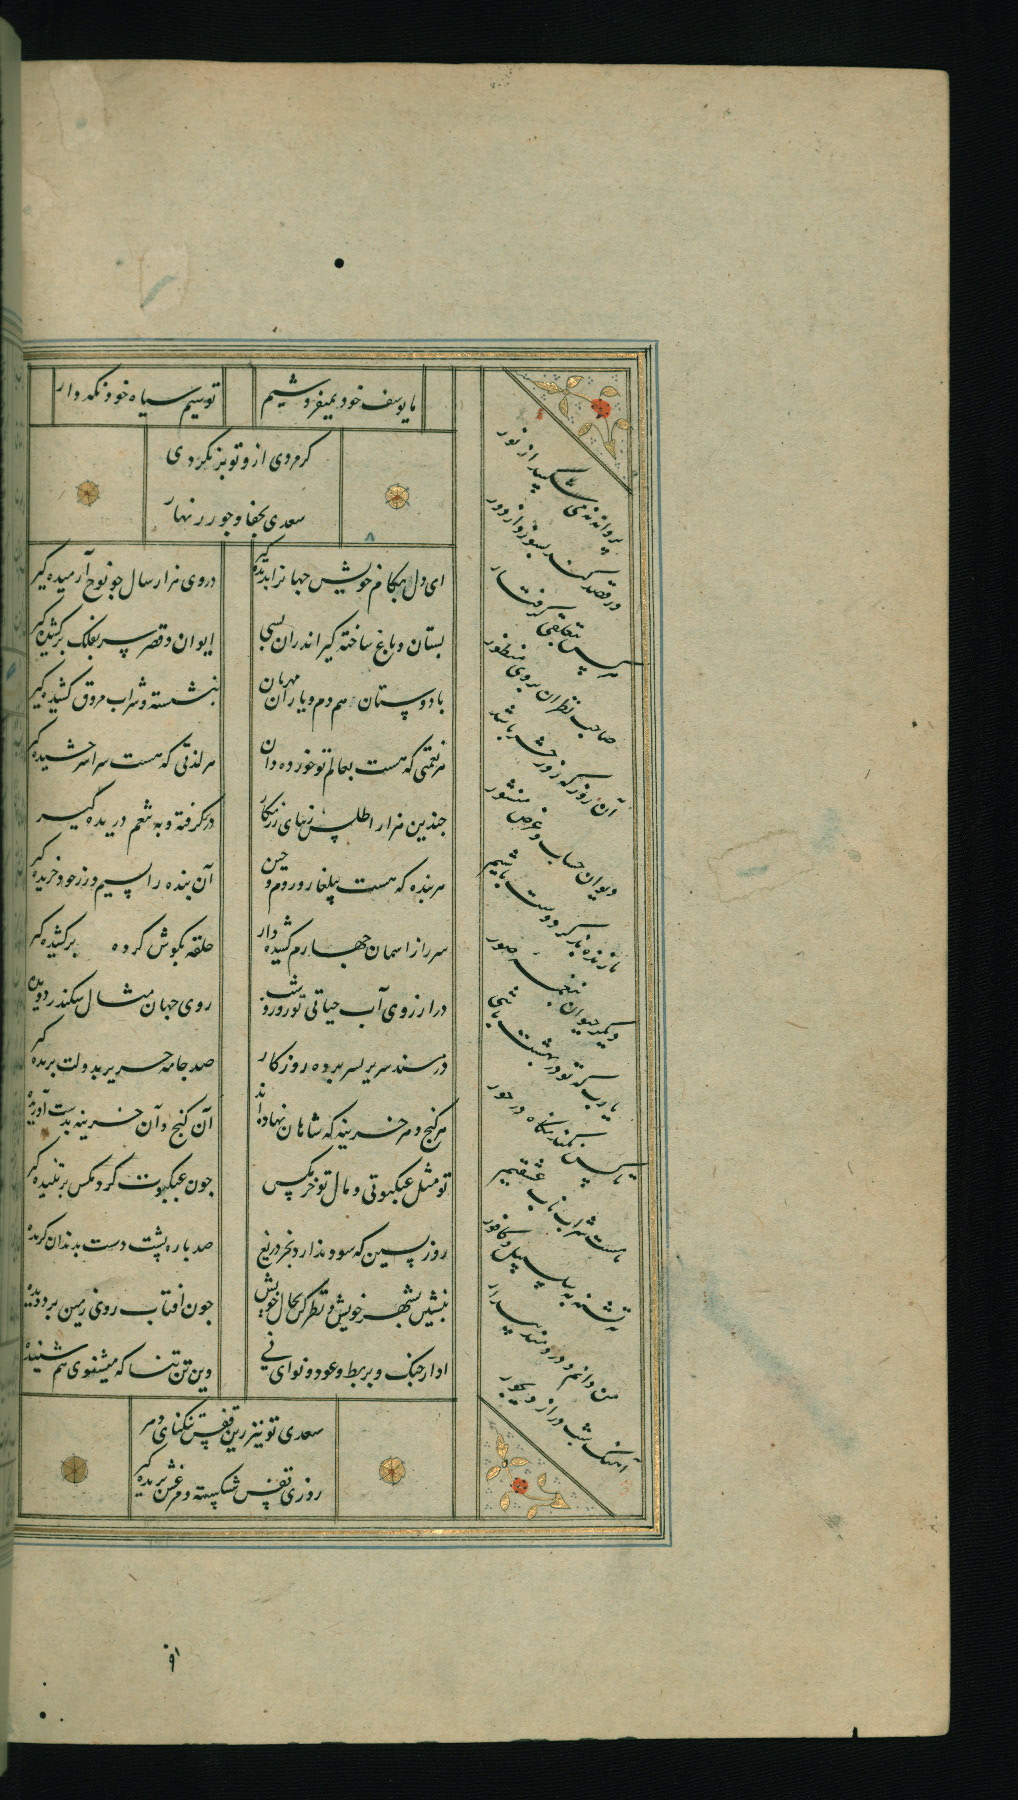 ما یوسف خود نمیفروشیم
تو سیم سیاه خود نگه دار
گر مردی ازو تو بز نکردی
سعدی بجفا و جور زنهار
ای دل بکام خویش جهانرا بدیده گیر
در وی هزار سال چو نوح آرمیده گیر
بستان و باغ ساخته گیر اندران بسی
ایوان و قصر سر بفلک برکشیده گیر
با دوستان هم دم و یاران مهربان
بنشسته و شراب مروق کشیده گیر
هر نعمتی که هست بعالم تو خورده دان
هر لذتی که هست سراسر چشیده گیر
چندین هزار اطلس زیبای زرنگار
در گرفته و به تنعم دریده گیر
هر بنده که هست ببلغار و روم و چین
آن بنده را بسیم و زر خود خریده گیر
سر را ز اسمان چهارم گشیده دار
حلقه بگوش کرده برکشیده گیر
در ارزوی آب حیاتی تو روز و شب
روی جهان مثال سکندر دویده
در سند سریر بسر برده روزکار
صد جامه حریر بدولت بریده گیر
هر گنج و هر خزینه که شاهان نهاده‌اند
آن گنج و آن خزینه بدست آوریده
تو مثل عنکبوتی و مال تو خرمگس
چون عنکبوت گرد مگس بر تنیده گیر
روز پسین که سود ندارد بجز دریغ
صد باره پشت دست بدندان گزیده
بنشین بشهر خویش و نظر کن بحال خویش
چون افتاب روی زمین بر دویده
اداز چنگ و بربط و عود و نوای نی
وین تن تنسا که میشنوی هم شنیده
سعدی تو نیز زین قفس تنکنای دهر
روزی قفس شکسته و مرغش پریده گیر
پروانه نمی شکیبد از نور
ور قصد کند بسوزد از دور
هر کس بتعلقی گرفتار
صاحب نظران بروی منظور
آن روز که روز حشر باشد
دیوان حساب و عرض منشور
ما زنده بذکر دوست باشیم
دیگر حیوان بنفخه صور
یا رب که تو در بهشت باشی
تا کس نکند نگاه در حور
ما مست شراب ناب عشقیم
نه تشنه به سلسبیل و کافور
من دانم و دردمند بیدار
آهنک شب دراز دیجور
۹۱